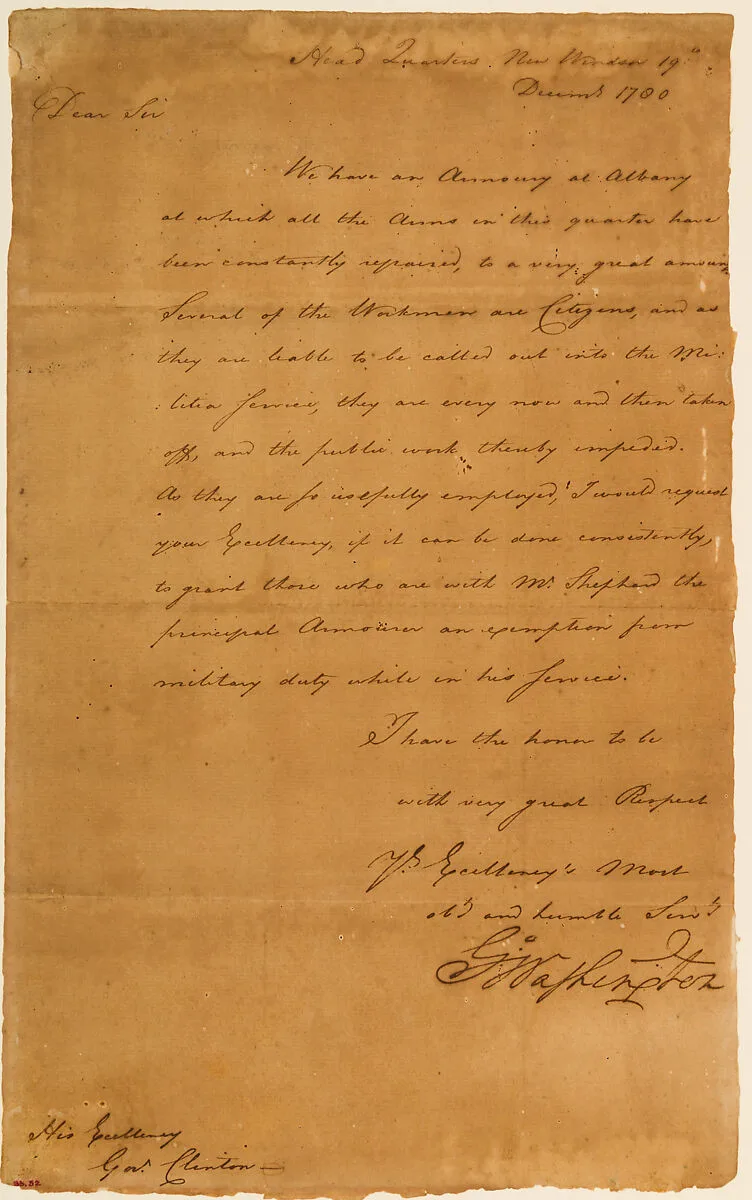 Head Quarters New Windsor 19th
Decemr 1780
Dear Sir
We have an Armoury at Albany
at which all the Arms in this quarter have
been constantly repaired, to a very great amount
Several of the Workmen are Citizens, and as
they are liable to be called out into the Mi:
:litia Service, they are every now and then taken
off, and the public work thereby impeded.
As they are so usefully employed, I would request
your Excellency, if it can be done consistently,
to grant those who are with Mr. Shephard the
principal Armourer an exemption from
military duty while in his Service.
I have the honor to be
with very great Respect
Yr. Excellency's Most
obt and humble Servt
Go: Washington
His Excellency
Govr. Clinton